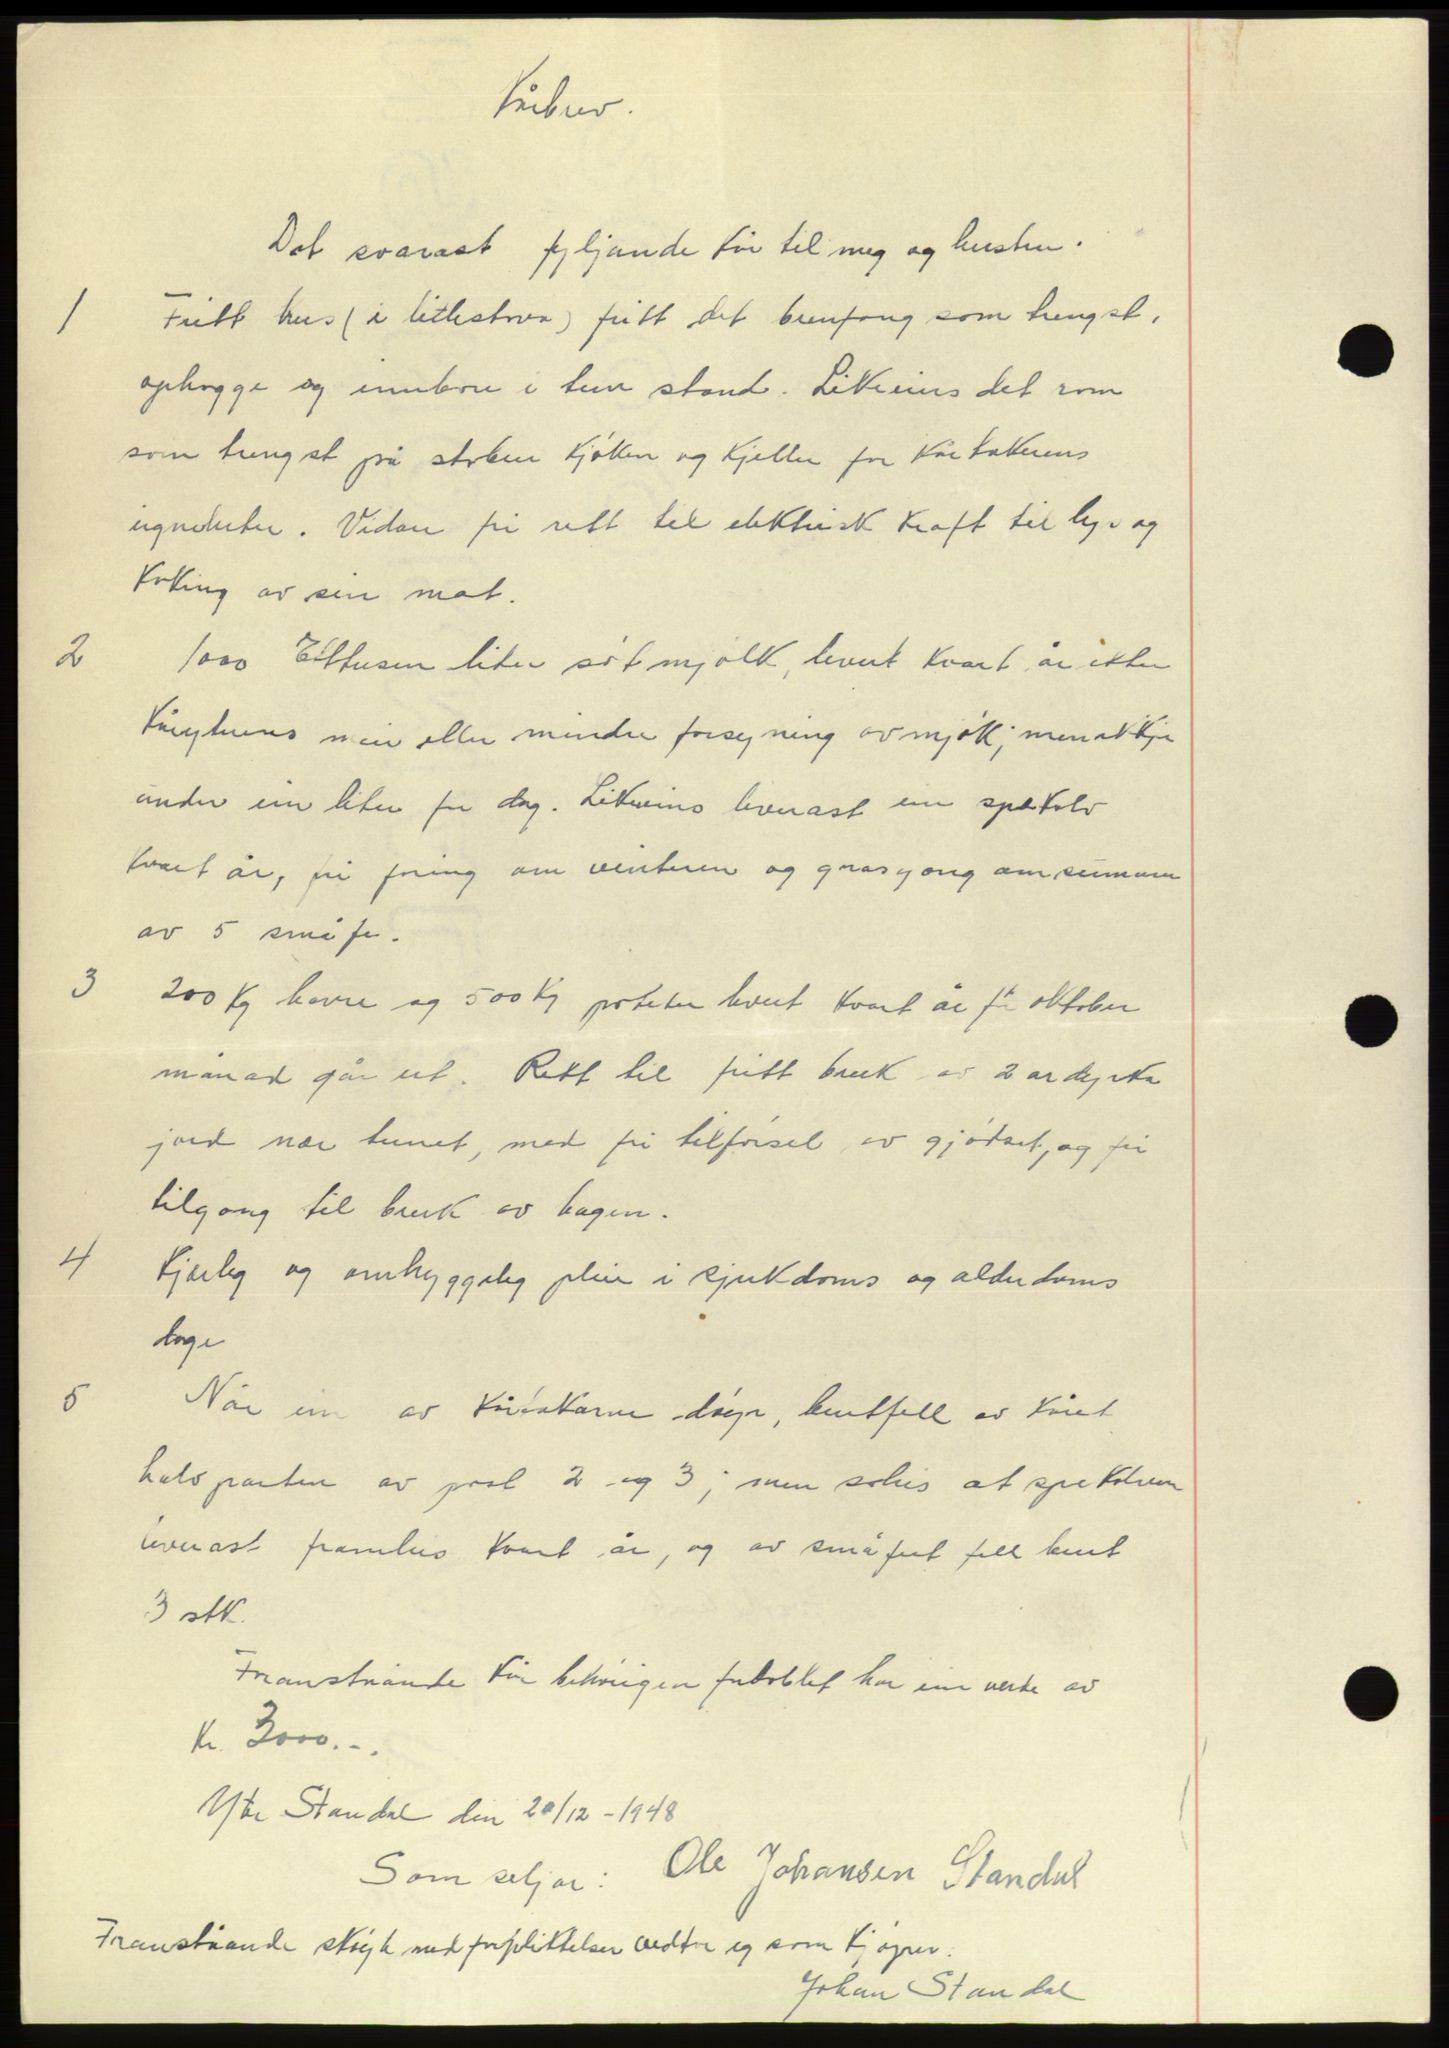 Kårbrev.
Det svarast fyljande kår til meg og hustru.
1 Fritt hus (i litlestova) fritt det brenfang som trengst,
ophogge og innbore i turr stand. Likeeins det rom
som trengst på stoben kjøken og kjeller for kårtakerens
eigneluter. Vidare fri rett til elektrisk kraft til lys og
koking av sin mat.
2 1000 Ettusen liter søt mjølk, levert kvart år etter
kåryterens meir eller mindre forsyning av mjølk; men ikkje
under ein liter pr dag. Likeeins leverast ein spekalv
kvart år, fri foring om vinteren og grasgong om sumaren
av 5 småfe.
3 200 kg havre og 500 kg poteter levert kvart år før oktober
månad går ut. Rett til fritt bruk av 2 ar dyrka
jord nær tunet, med fri tilførsel av gjødsel, og fri
tilgong til bruk av hagen.
4 Kjærleg og omhyggeleg pleie i sjukdoms og alderdoms
dage
5 Når ein av kårtakarne døyr, burtfell av kåret
halvparten av post 2 og 3; men soleis at spekalven
leverast framleis kvart år, og av småfeet fell burt
3 stk.
Framståande kår beheng ... har ein verde av
kr. 3000.-.
Ytre Standal den 20/12-1948
Som seljar: Ole Johansen Standal
Framståande skøyte med forpliktelser vedtar eg som kjøper.
Johan Standal